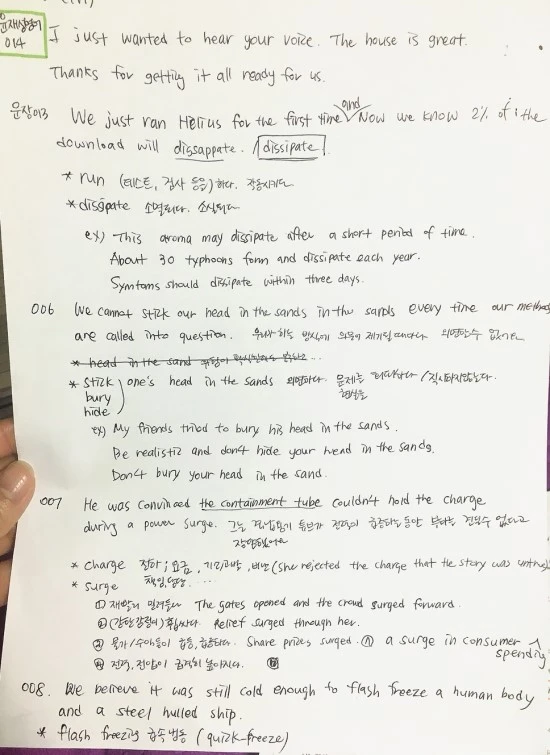 문장영어
014
I just wanted to hear your voice. The house is great.
Thanks for getting it all ready for us.
문장013 We just ran Helius for the first time and Now we know 2% of the
download will dissappate. / dissipate
* run (테스트, 검사 등을)하다. 작동시키다
* dissipate 소멸되다. 소실되다
ex) This aroma may dissipate after a short period of time.
About 30 typhoons form and dissipate each year.
Symtoms should dissipate within three days.
006 We cannot stick our head in the sands in the sands every time our methods
are called into question. 우리가 하는 방식에 의문이 제기될때마다 외면할수 없어요
* head in the sand
* stick one's head in the sands 외면하다. 문제를 /직시하지않는다.
bury 현실을
hide
ex) My friends tried to bury his head in the sands.
Be realistic and don't hide your head in the sands.
Don't bury your head in the sand.
007 He was convinced the containment tube couldn't hold the charge
during a power surge. 그는 튜브가 전력이 급증하는동안 부하를 견딜수 없다고
* charge 장하; 요금, 기리고발, 비난 (she rejected the charge that the story was untrue)
* surge 책임,담당. ...
① 재빨리 밀려들다 The gates opened and the crowd surged forward.
② (강한감정이) 휩싸다. Relief surged through her.
③ 물가/수요등이 급등,급증하다. Share prices surged. ⓝ a surge in consumer
spending
④ 전력, 전압이 급격히 높아지다.
008. We believe it was still cold enough to flash freeze a human body
and a steel hulled ship.
* flash freezing 급속냉동 (quick-freeze)